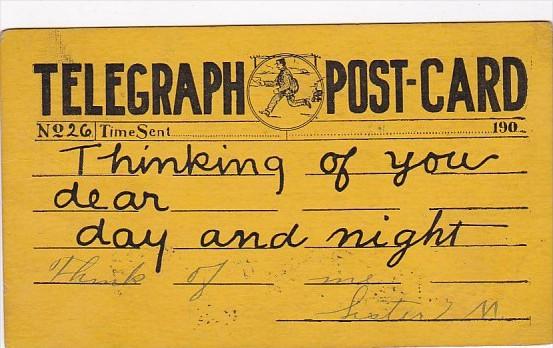 TELEGRAPH POST-CARD
No 26 Time Sent 190
Thinking of you
dear
day and night
Think of me
Sister